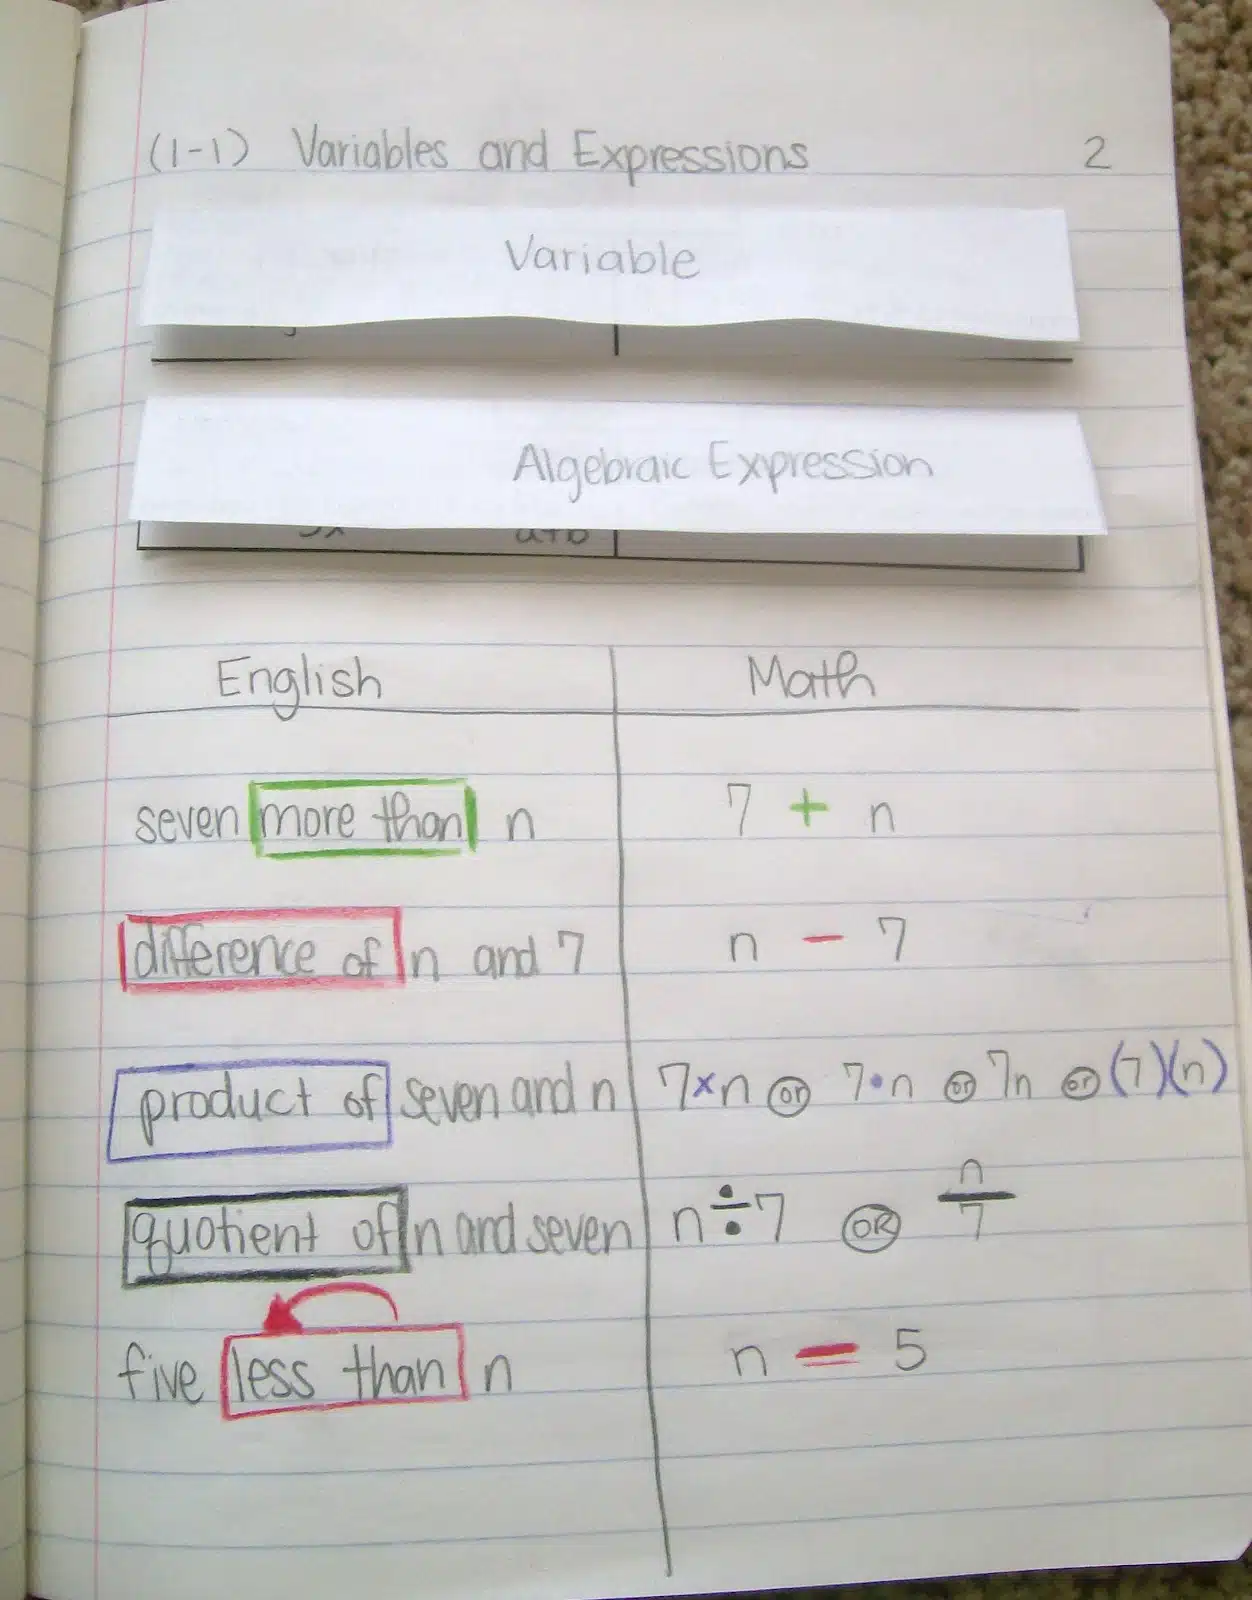 (1-1) Variables and Expressions 2
Variable
Algebraic Expression
a+b
English Math
seven more than n 7 + n
difference of n and 7 n - 7
product of seven and n 7×n or 7•n or 7n or (7)(n)
quotient of n and seven n÷7 OR n/7
five less than n n - 5